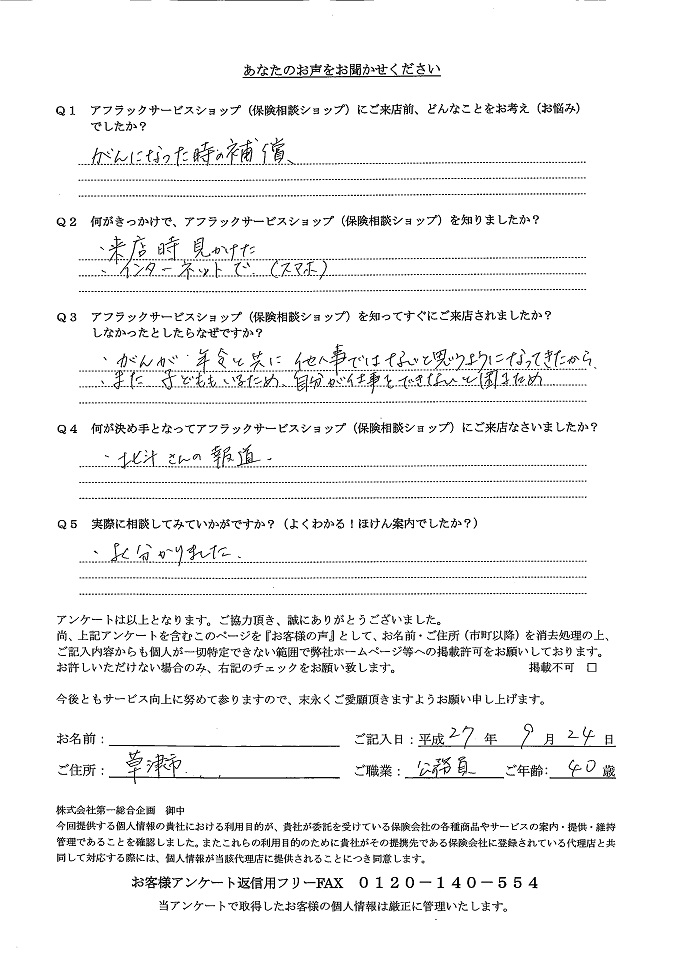 あなたのお声をお聞かせください
Q1 アフラックサービスショップ(保険相談ショップ)にご来店前、どんなことをお考え(お悩み)
でしたか?
がんになった時の補償、
Q2 何がきっかけで、アフラックサービスショップ(保険相談ショップ)を知りましたか?
・来店時見かけた
・インターネットで.(スマホ)
Q3 アフラックサービスショップ(保険相談ショップ)を知ってすぐにご来店されましたか?
しなかったとしたらなぜですか?
・がんが 年令と共に 他人事ではないと思うようになってきたから、
・また 子どももいるため、自分が仕事をできないと困るため
Q4 何が決め手となってアフラックサービスショップ(保険相談ショップ)にご来店なさいましたか?
・北斗さんの報道.
Q5 実際に相談してみていかがですか?(よくわかる!ほけん案内でしたか?)
・よく分かりました.
アンケートは以上となります。ご協力頂き、誠にありがとうございました。
尚、上記アンケートを含むこのページを『お客様の声』として、お名前・ご住所(市町以降)を消去処理の上、
ご記入内容からも個人が一切特定できない範囲で弊社ホームページ等への掲載許可をお願いしております。
お許しいただけない場合のみ、右記のチェックをお願い致します。 掲載不可 □
今後ともサービス向上に努めて参りますので、末永くご愛顧頂きますようお願い申し上げます。
お名前: ご記入日:平成27年 9月24日
ご住所: 草津市 ご職業: 公務員 ご年齢: 40歳
株式会社第一総合企画 御中
今回提供する個人情報の貴社における利用目的が、貴社が委託を受けている保険会社の各種商品やサービスの案内・提供・維持
管理であることを確認しました。またこれらの利用目的のために貴社がその提携先である保険会社に登録されている代理店と共
同して対応する際には、個人情報が当該代理店に提供されることにつき同意します。
お客様アンケート返信用フリーFAX 0120-140-554
当アンケートで取得したお客様の個人情報は厳正に管理いたします。